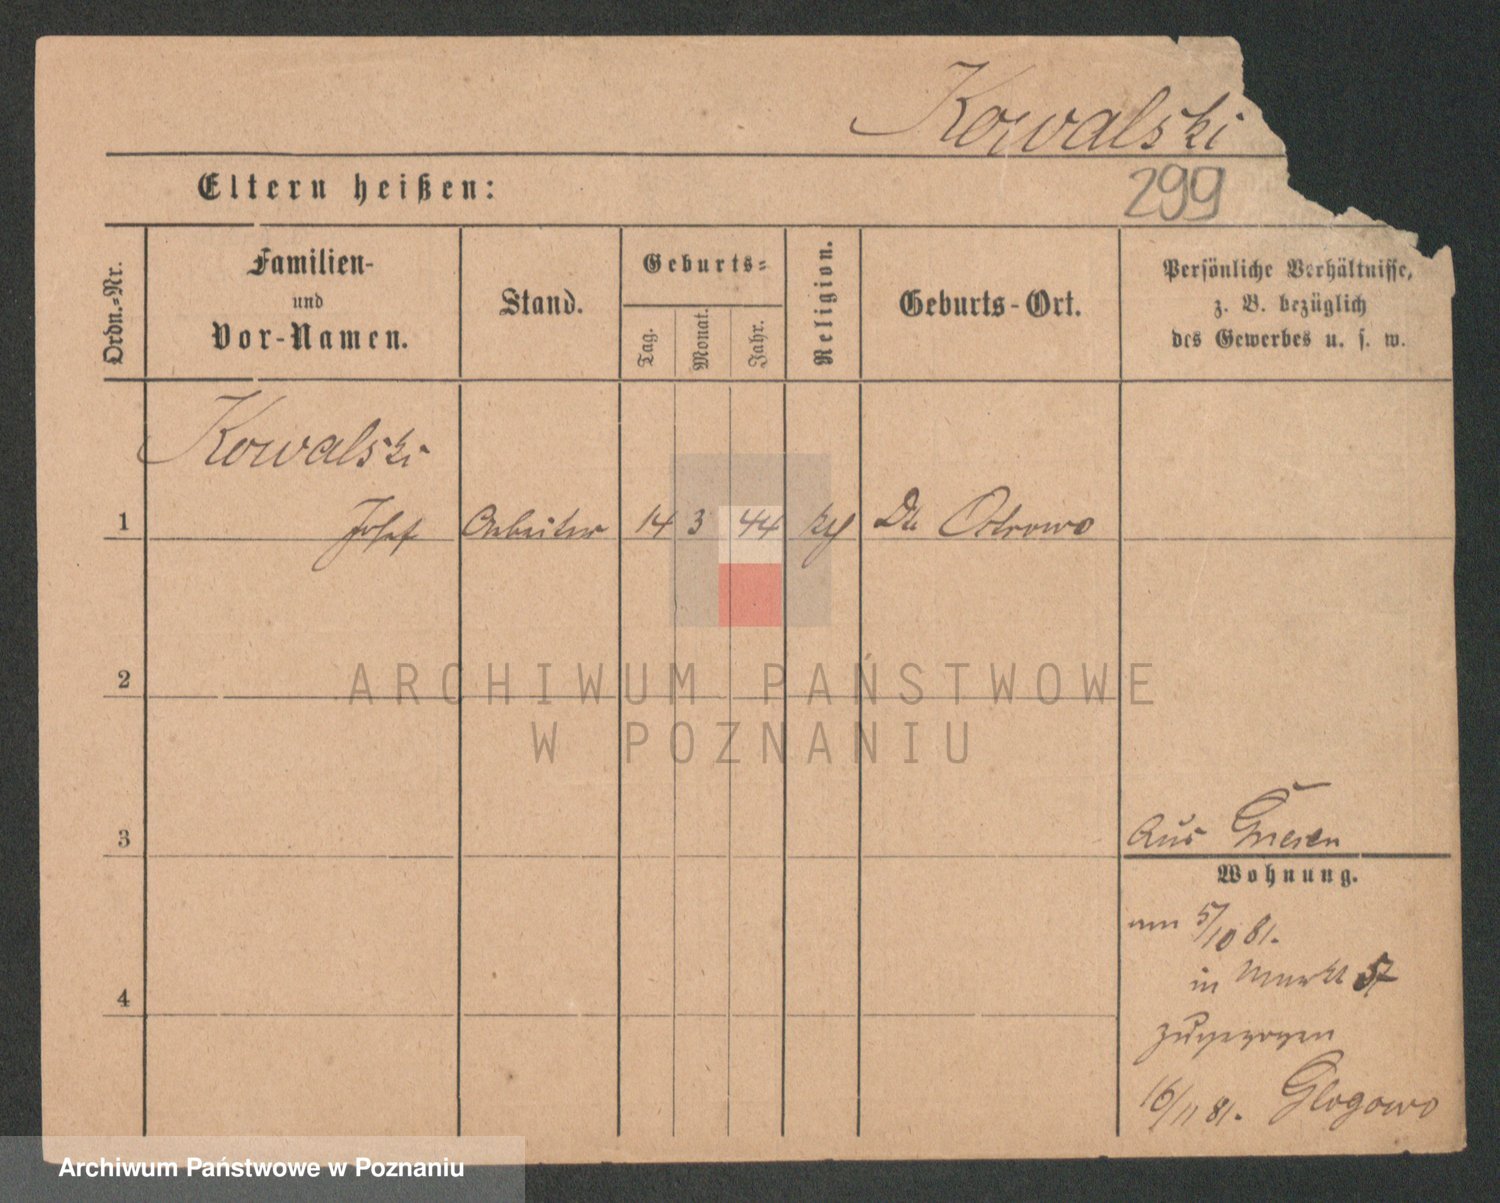 Kowalski
299
Eltern heißen:
Ordn.-Nr.
Familien-
und
Vor-Namen.
Stand.
Geburts-
Tag.
Monat.
Jahr.
Religion.
Geburts-Ort.
Persönliche Verhältnisse,
z. B. bezüglich
des Gewerbes u. s. w.
Kowalski
1 Josef Arbeiter 14 3 44 Dt. Ostrowo
2
ARCHIWUM PAŃSTWOWE
W POZNANIU
3
Aus Gnesen
Wohnung.
am 5/10 81.
in Markt 57
4
zugezogen
16/11 81. Glogowo
Archiwum Państwowe w Poznaniu